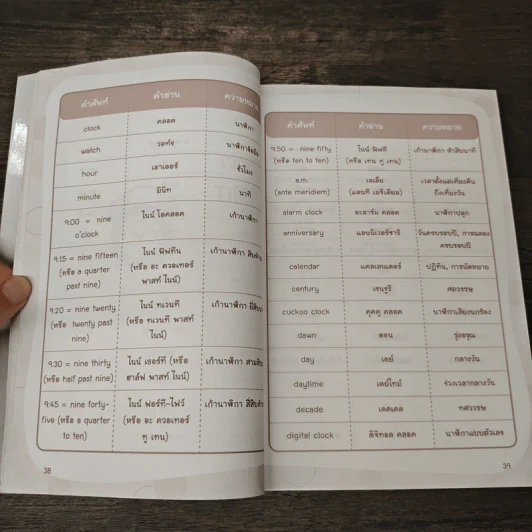 คำศัพท์ คำอ่าน ความหมาย
clock คลอค นาฬิกา
watch วอทช์ นาฬิกาข้อมือ
hour เอาเออร์ ชั่วโมง
minute มินิท นาที
9:00 = nine ไนน์ โอคลอค เก้านาฬิกา
o'clock
9:15 = nine fifteen ไนน์ ฟิฟทีน เก้านาฬิกา
(หรือ a quarter (หรือ อะ ควอเทอร์
past nine) พาสท์ ไนน์)
9:20 = nine twenty ไนน์ ทเวนที เก้านาฬิกา
(หรือ twenty past (หรือ ทเวนที พาสท์
nine) ไนน์)
9:30 = nine thirty ไนน์ เธอร์ที (หรือ เก้านาฬิกา
(หรือ half past nine) ฮาล์ฟ พาสท์ ไนน์)
9:45 = nine forty- ไนน์ ฟอร์ที-ไฟว์ เก้านาฬิกา
five (หรือ a quarter (หรือ อะ ควอเทอร์
to ten) ทู เทน)
38
คำศัพท์ คำอ่าน ความหมาย
9:50 = nine fifty ไนน์ ฟิฟตี เก้านาฬิกา ห้าสิบนาที
(หรือ ten to ten) (หรือ เทน ทู เทน)
a.m. เอเอ็ม เวลาตั้งแต่เที่ยงคืน
(ante meridiem) (แอนที เมริเดียม) ถึงเที่ยงวัน
alarm clock อะลาร์ม คลอค นาฬิกาปลุก
anniversary แอนนิเวอร์ซารี วันครบรอบปี, การฉลอง
ครบรอบปี
calendar แคลเลนเดอร์ ปฏิทิน, การนัดหมาย
century เซนจูรี ศตวรรษ
cuckoo clock คุคคู คลอค นาฬิกาเสียงนกร้อง
dawn ดอน รุ่งอรุณ
day เดย์ กลางวัน
daytime เดย์ไทม์ ช่วงเวลากลางวัน
decade เดคเคด ทศวรรษ
digital clock ดิจิทอล คลอค นาฬิกาแบบตัวเลข
39